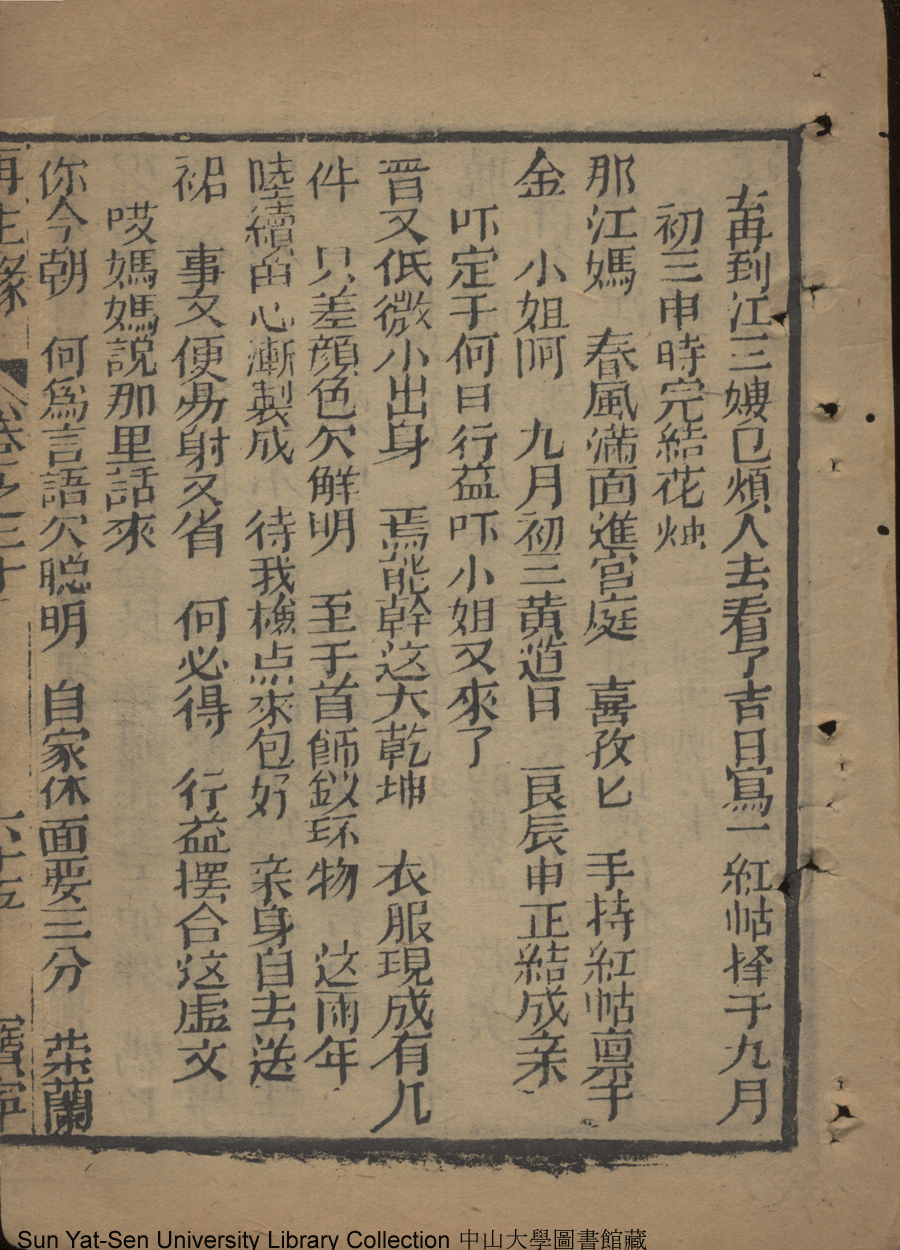 再到江三嫂已煩人去看了吉日寫一紅帖择于九月
初三申時完結花烛
那江媽　春風滿面進宮庭　喜孜匕　手持紅帖禀千
金　小姐阿　九月初三黄道日　良辰申正結成亲
吓定于何日行益吓小姐又來了
晋又低微小出身　焉能幹这大乾坤　衣服現成有几
件　只差顔色欠鮮明　至于首師釵环物　这兩年
陸續留心漸製成　待我檢点來包好　亲身自去送
裙　事又便易財又省　何必得　行益擺合这虛文
哎媽媽說那里話來
你今朝　何為言語欠聪明　自家体面要三分　荣蘭
再生緣　卷之三十　六十五　寳寧
Sun Yat-Sen University Library Collection 中山大學圖書館藏